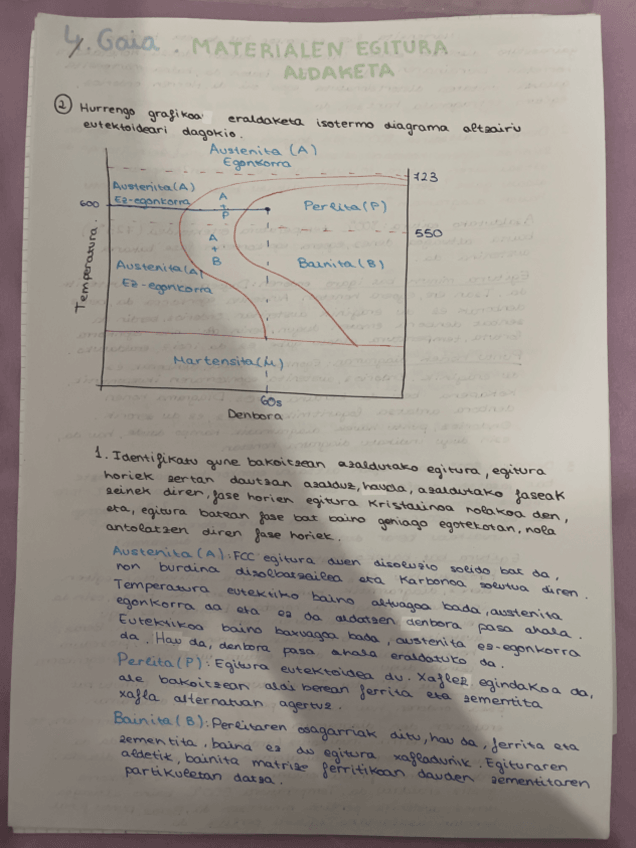 4. Gaia. MATERIALEN EGITURA
ALDAKETA
② Hurrengo grafikoa eraldaketa isotermo diagrama altzairu
eutektoideari dagokio.
Austenita (A)
Egonkorra
723
Austenita (A)
Ez-egonkorra
A
+
P
Perlita (P)
600
550
A
+
B
Bainita (B)
Austenita (A)
Ez-egonkorra
Temperatura.
Martensita (M)
60s
Denbora
1. Identifikatu gune bakoitzean azaldutako egitura, egitura
horiek zertan dautzan azalduz, hauda, azaldutako faseak
zeinek diren, fase horien egitura kristalinoa nolakoa den,
eta, egitura batean fase bat baino gehiago egotekotan, nola
antolatzen diren fase horiek.
Austenita (A): FCC egitura duen disoluzio solido bat da,
non burdina disolbatzailea eta karbonoa solutua diren.
Temperatura eutektiko baino altuagoa bada, austenita
egonkorra da eta ez da aldatzen denbora pasa ahala.
Eutektikoa baino baxuagoa bada, austenita ez-egonkorra
da. Hau da, denbora pasa ahala eraldatuko da.
Perlita (P): Egitura eutektoidea du. Xaflez egindakoa da,
ale bakoitzean aldi berean ferrita eta zementita
xafla alternatuan agertuz.
Bainita (B): Perlitaren osagarriak ditu, hau da, ferrita eta
zementita, baina ez du egitura xafladunik. Egituraren
aldetik, bainita matrize ferritikoan dauden zementitaren
partikuletan datza.